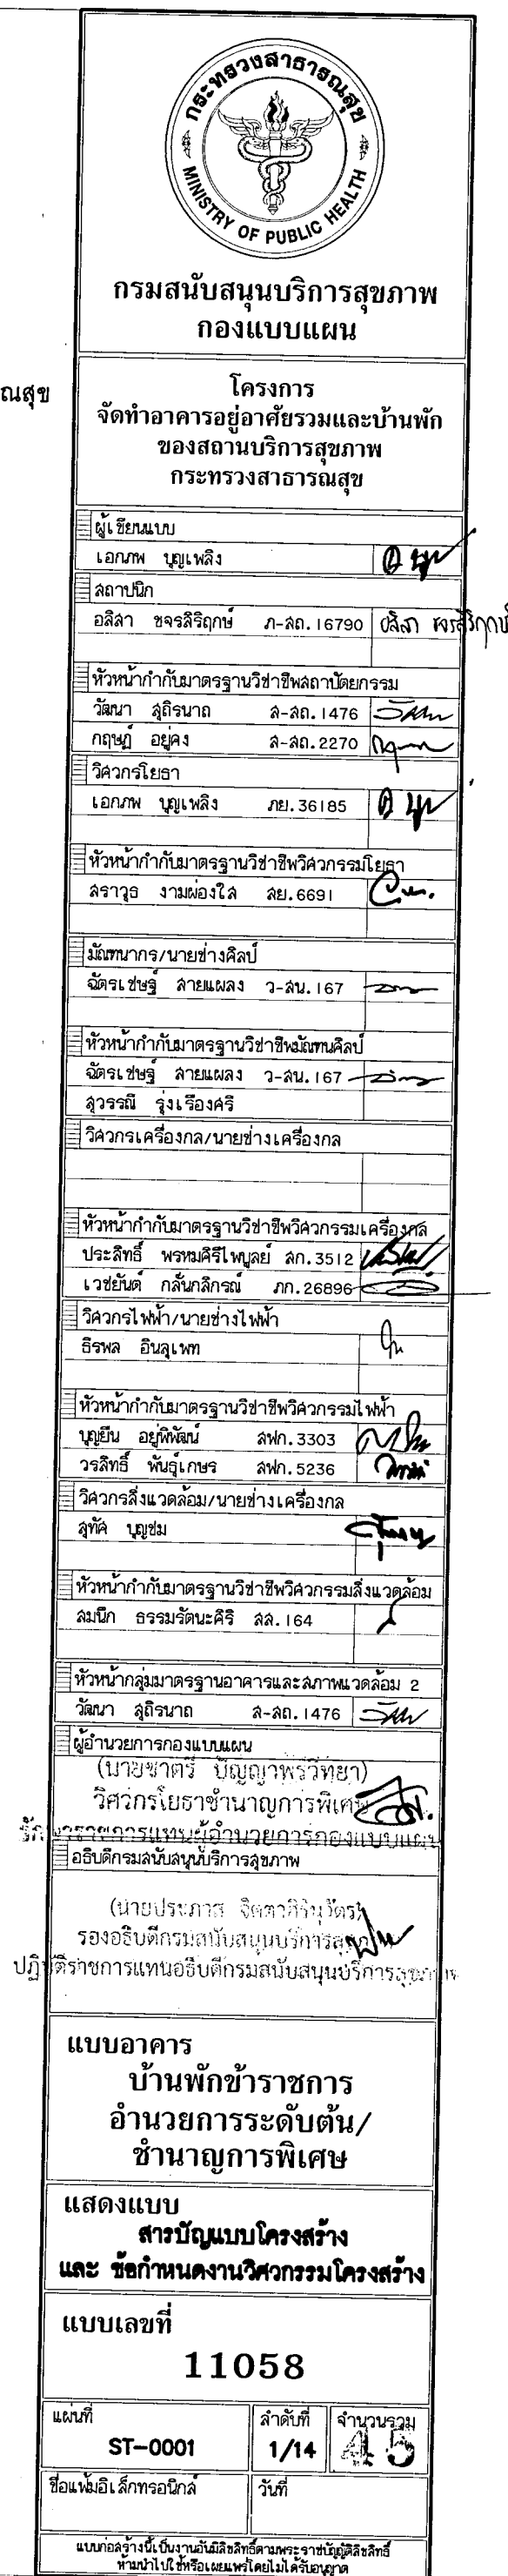 กระทรวงสาธารณสุข
MINISTRY OF PUBLIC HEALTH
กรมสนับสนุนบริการสุขภาพ
กองแบบแผน
ณสุข
โครงการ
จัดทำอาคารอยู่อาศัยรวมและบ้านพัก
ของสถานบริการสุขภาพ
กระทรวงสาธารณสุข
ผู้เขียนแบบ
เอกภพ บุญเพลิง
สถาปนิก
อลิสา ขจรสิริฤกษ์ ภ-สถ.16790 อลิสา ขจรสิริฤกษ์
หัวหน้ากำกับมาตรฐานวิชาชีพสถาปัตยกรรม
วัฒนา สุถิรนาถ ส-สถ.1476
กฤษฎ์ อยู่คง ส-สถ.2270
วิศวกรโยธา
เอกภพ บุญเพลิง ภย.36185
หัวหน้ากำกับมาตรฐานวิชาชีพวิศวกรรมโยธา
สราวุธ งามผ่องใส สย.6691
มัณฑนากร/นายช่างศิลป์
ฉัตรเชษฐ์ สายแผลง ว-สน.167
หัวหน้ากำกับมาตรฐานวิชาชีพมัณฑนศิลป์
ฉัตรเชษฐ์ สายแผลง ว-สน.167
สุวรรณี รุ่งเรืองศรี
วิศวกรเครื่องกล/นายช่างเครื่องกล
หัวหน้ากำกับมาตรฐานวิชาชีพวิศวกรรมเครื่องกล
ประสิทธิ์ พรหมคิรีไพบูลย์ สก.3512
เวชยันต์ กลั่นกลิกรณ์ ภก.26896
วิศวกรไฟฟ้า/นายช่างไฟฟ้า
ธิรพล อินลุเพท
หัวหน้ากำกับมาตรฐานวิชาชีพวิศวกรรมไฟฟ้า
บุญยืน อยู่พิพัฒน์ สฟก.3303
วรสิทธิ์ พันธุ์เกษร สฟก.5236
วิศวกรสิ่งแวดล้อม/นายช่างเครื่องกล
สุทัศ บุญชม
หัวหน้ากำกับมาตรฐานวิชาชีพวิศวกรรมสิ่งแวดล้อม
สมนึก ธรรมรัตนะคิริ สส.164
หัวหน้ากลุ่มมาตรฐานอาคารและสภาพแวดล้อม 2
วัฒนา สุถิรนาถ ส-สถ.1476
ผู้อำนวยการกองแบบแผน
(นายชาตรี ปัญญาพรวิทยา)
วิศวกรโยธาชำนาญการพิเศษ
รักษาราชการแทนผู้อำนวยการกองแบบแผน
อธิบดีกรมสนับสนุนบริการสุขภาพ
(นายประภาส
รองอธิบดีกรมสนับสนุนบริการสุขภาพ
ปฏิบัติราชการแทนอธิบดีกรมสนับสนุนบริการสุขภาพ
แบบอาคาร
บ้านพักข้าราชการ
อำนวยการระดับต้น/
ชำนาญการพิเศษ
แสดงแบบ
สารบัญแบบโครงสร้าง
และ ข้อกำหนดงานวิศวกรรมโครงสร้าง
แบบเลขที่
11058
แผ่นที่ ลำดับที่ จำนวนรวม
ST-0001 1/14 45
ชื่อแฟ้มอิเล็กทรอนิกส์ วันที่
แบบก่อสร้างนี้เป็นงานอันมีลิขสิทธิ์ตามพระราชบัญญัติลิขสิทธิ์
ห้ามนำไปใช้หรือเผยแพร่โดยไม่ได้รับอนุญาต